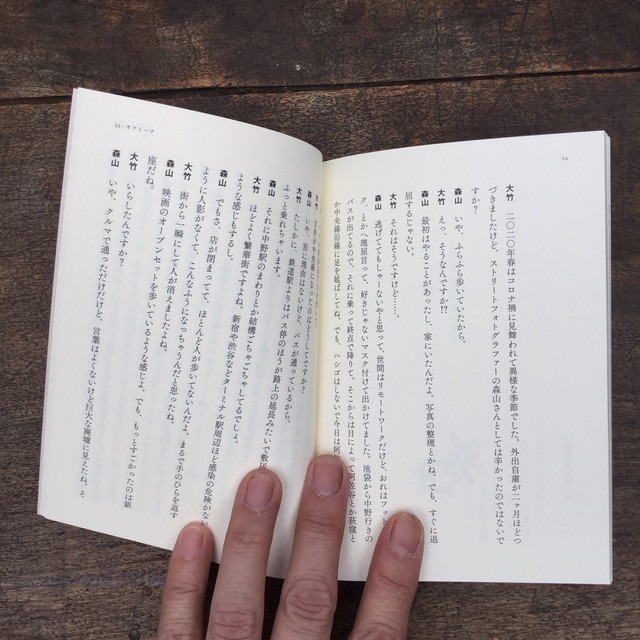 54
大竹　二〇二〇年春はコロナ禍に見舞われて異様な季節でした。外出自粛が二ヶ月ほどつ
づきましたけど、ストリートフォトグラファーの森山さんとしては辛かったのではないで
すか？
森山　いや、ふらふら歩いていたから。
大竹　えっ、そうなんですか!?
森山　最初はやることがあったし、家にいたんだよ。写真の整理とかね。でも、すぐに退
屈するじゃない。
大竹　それはそうですけど……。
森山　逃げててもしゃーないやと思って、世間はリモートワークだけど、おれはフッ
ク、とか屁理屈言って、好きじゃないマスク付けて出かけてました。池袋から中野行きの
バスが出てくるので、それに乗って終点で降りて、そこからは日によって阿佐谷とか荻窪と
か中央線沿線に足を延ばしてね。でも、ハシゴはしないで今日は阿
55
森山　いや、別に理由はないけど、バスが通っているから。
大竹　たしかに、鉄道駅よりはバス体のほうが路上の延長みたいで敷居
ふっと乗れちゃいます。
森山　それに中野駅のまわりとか結構ごちゃごちゃしてるでしょ。
大竹　ほどよく繁華街ですよね。新宿や渋谷などターミナル駅周辺ほど感染の危険がない
ような感じもするし。
森山　でもさ、店が閉まってて、ほとんど人が歩いてないんだよ。まるで手のひらを返す
ように人影がなくて、こんなふうになっちゃうんだと思ったね。
大竹　街から一瞬にして人が消えましたよね。
森山　映画のオープンセットを歩いているような感じよ。でも、もっとすごかったのは銀
座だね。
大竹　いらしたんですか？
森山　いや、クルマで通っただけだけど、言葉はよくないけど巨大な廃墟に見えたね。そ